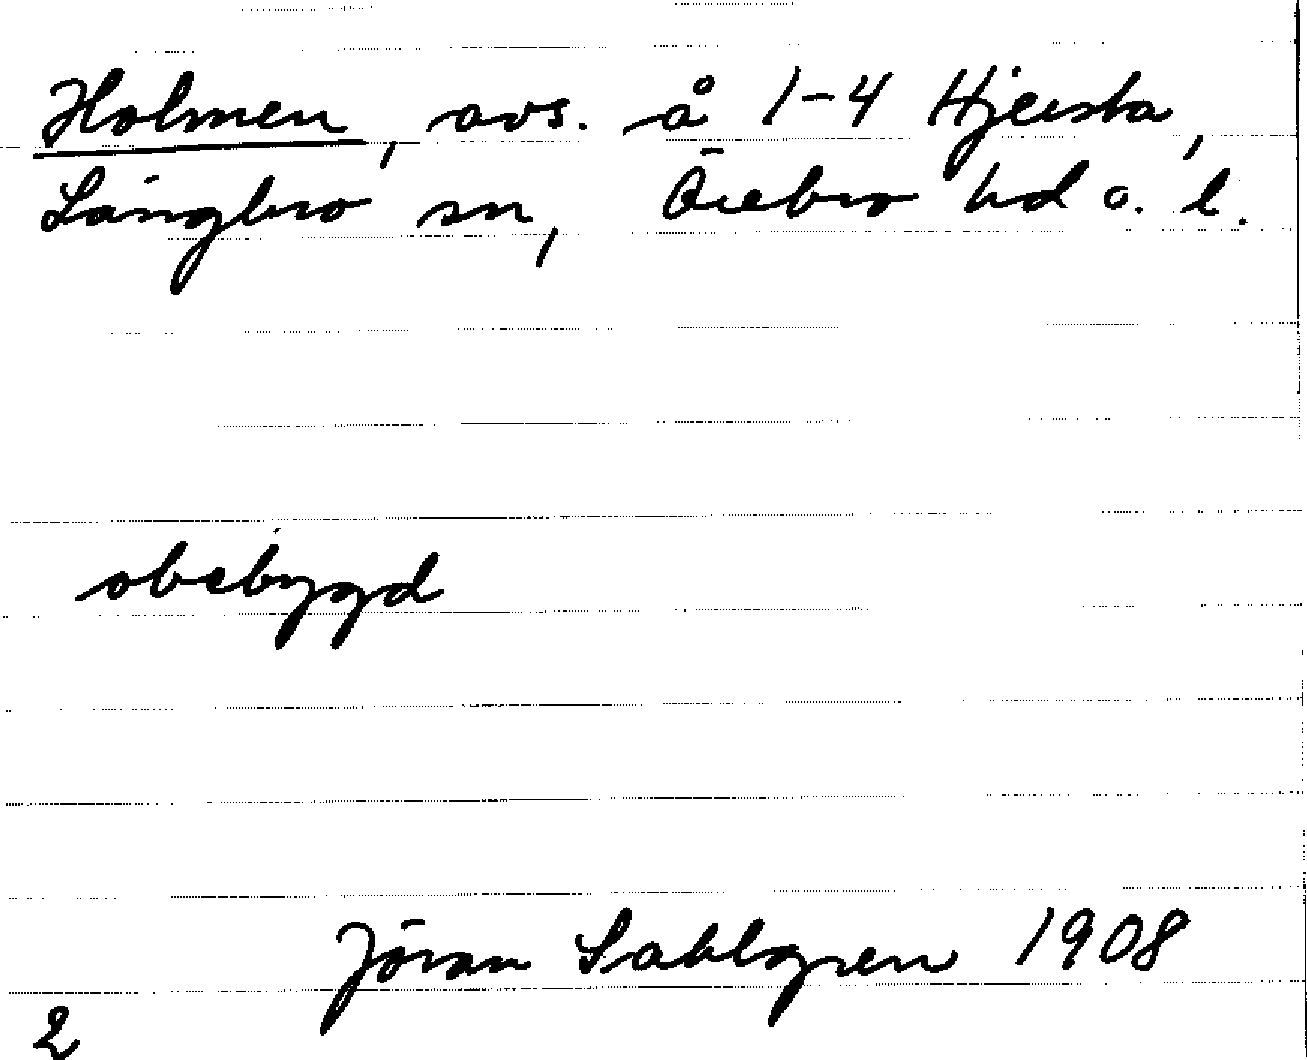 Holmen, avs. å 1-4 Hjersta,
Längbro sn, Örebro hd o. l.
obebygd
Jöran Sahlgren 1908
2